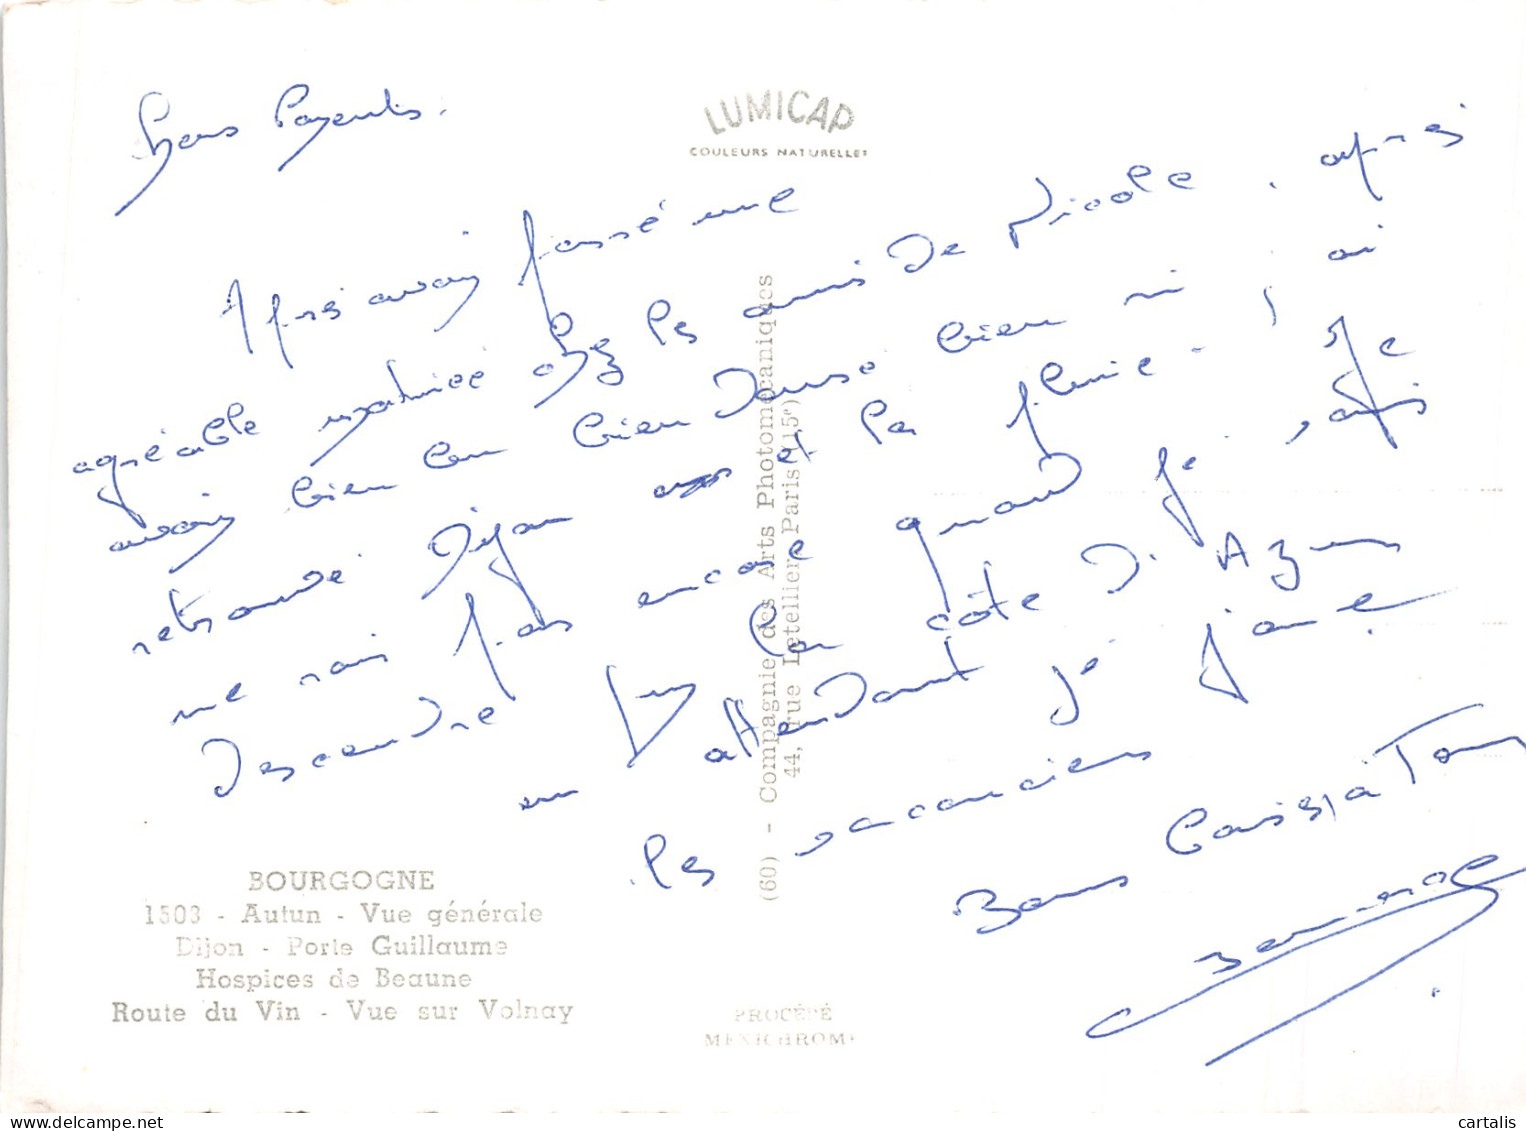 LUMICAP
COULEURS NATURELLES
Chers Parents,
Après avoir passé une
agréable matinée chez les amis de Nicole, après
avoir bien bu bien dansé bien ri, j'ai
retrouvé Dijon et la pluie. Je
ne sais pas encore quand je vais
descendre sur la côte d'Azur
en attendant je
les vacanciers
Bons Baisers à Tous
BOURGOGNE
1503 - Autun - Vue générale
Dijon - Porte Guillaume
Hospices de Beaune
Route du Vin - Vue sur Volnay
(60) - Compagnie des Arts Photomécaniques
44, rue Letellier, Paris (15e)
PROCÉDÉ
MEXICHROME
cartalis